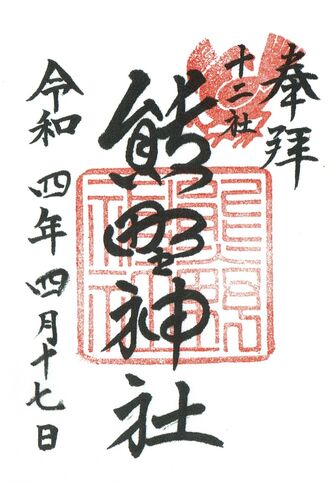 奉拝
十二社
熊野神社
令和四年四月十七日
熊野
神社